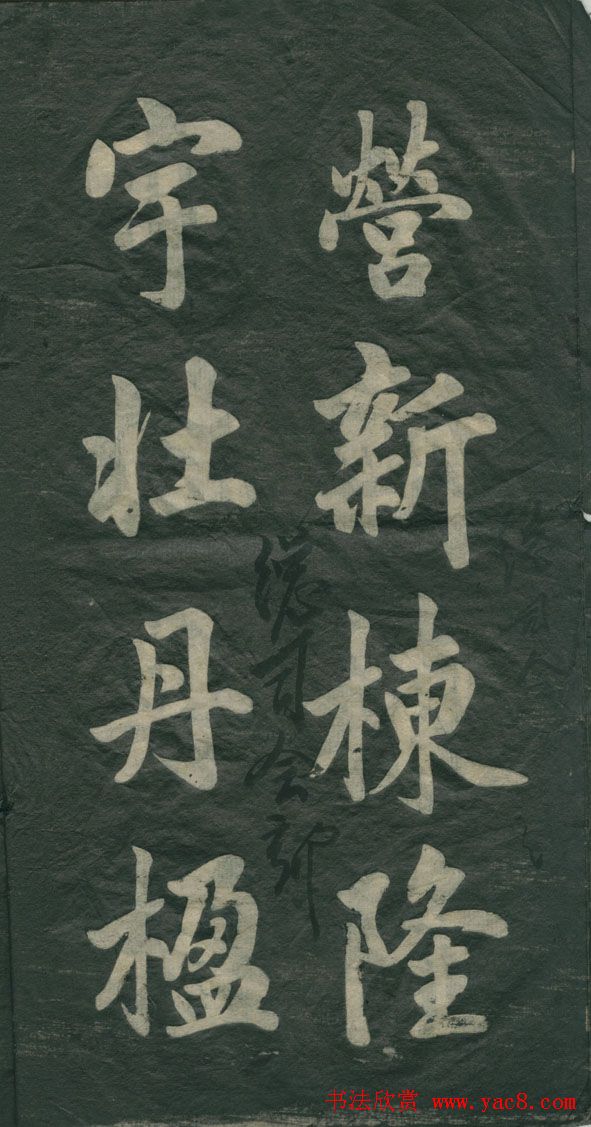 營新棟隆
宇壯丹楹
书法欣赏 www.yac8.com